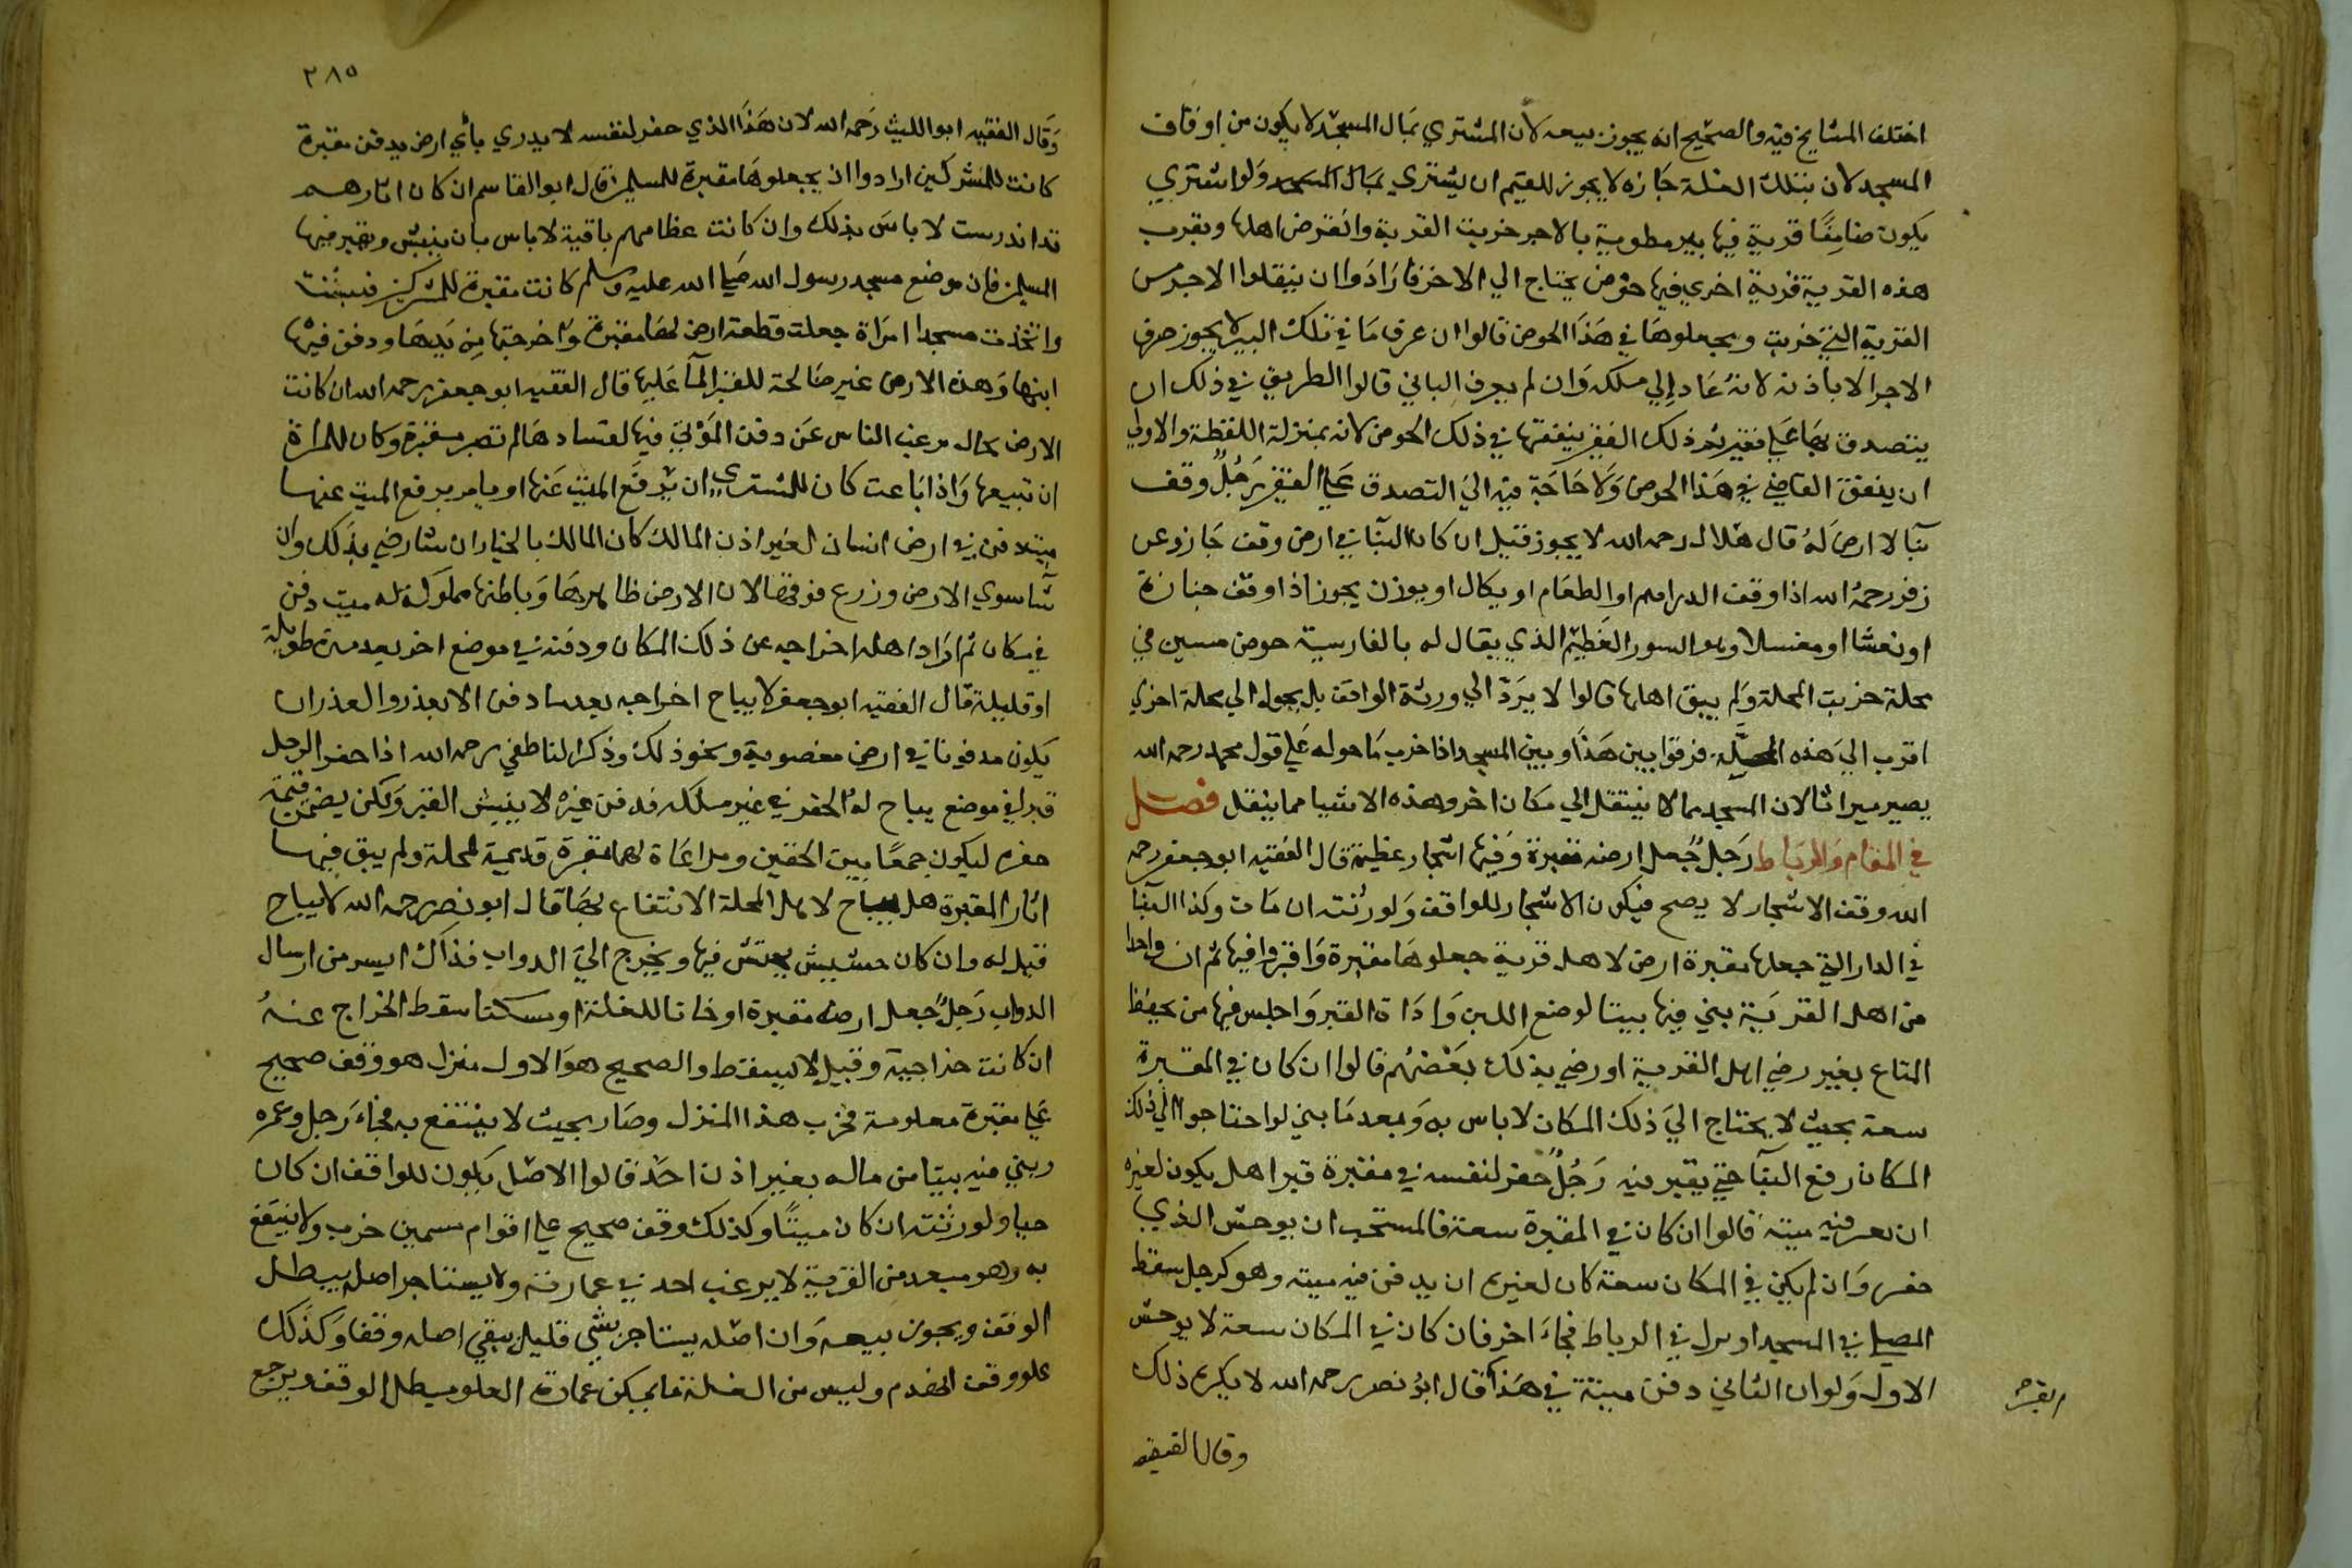 اختلف المشايخ فيه والصحيح انه يجوز بيعه لان المشتري بمال المسجد لا يكون من اوقاف
المسجد لان بتلك الغلة جازه لا يجوز للقيم ان يشتري بمال المسجد ولو اشتري
يكون ضامنا قرية فيها بير مطوية بالاجر خربت القرية وانقرض اهلها وبقرب
هذه القرية قرية اخري فيها حوض يحتاج الي الاخر فارادوا ان ينقلوا الاجر من
القرية التي خربت ويجعلوها في هذا الحوض قالوا ان عرف ما في تلك البير لا يجوز صرف
الاجر الا باذنه لانه عاد الي ملكه وان لم يعرف الباني قالوا الطريق في ذلك ان
يتصدق بها علي فقير ثم ذلك الفقير ينفقها في ذلك الحوض لانه بمنزلة اللقطة والاولي
ان ينفق القاضي في هذا الحوض ولا حاجة فيه الي التصدق علي الفقير رجل وقف
بنا لا ارض له قال هلال رحمه الله لا يجوز قيل ان كان البنا في ارض وقف جاز وعن
زفر رحمه الله اذا وقف الدراهم او الطعام او يكال او يوزن يجوز اذا وقف جنازة
او نعشا او مغتسلا وهو السور العظيم الذي يقال له بالفارسية حوض مسين في
محلة خربت المحلة ولم يبق اهلها قالوا لا يرد الي ورثة الواقف بل يحول الي محلة اخري
اقرب الي هذه المحلة فرقوا بين هذا وبين المسجد اذا خرب ما حوله علي قول محمد رحمه الله
يصير ميراثا لان المسجد مما لا ينتقل الي مكان اخر وهذه الاشيا مما ينقل فصل
في المقام والرباط رجل جعل ارضه مقبرة وفيها اشجار عظيمة قال الفقيه ابو جعفر رحمه
الله وقف الاشجار لا يصح فيكون الاشجار للواقف ولورثته ان مات وكذا البنا
في الدار التي جعلها مقبرة ارض لاهل قرية جعلوها مقبرة واقبروا فيها ثم ان واحدا
من اهل القرية بني فيها بيتا لوضع اللبن واداة القبر واجلس فيها من يحفظ
المتاع بغير رضي اهل القرية او رضي بذلك بعضهم قالوا ان كان في المقبرة
سعة بحيث لا يحتاج الي ذلك المكان لا باس به وبعد ما بني لو احتاجوا الي ذلك
المكان رفع البنا حتي يقبر فيه رجل حفر لنفسه في مقبرة قبرا هل يكون لغيره
ان يقبر فيه ميته قالوا ان كان في المقبرة سعة فالمستحب ان يوحش الذي
حفر وان لم يكن في المكان سعة كان لغيره ان يدفن فيه ميته وهو كرجل بسط
المصلي في المسجد او نزل في الرباط فجاء اخر فان كان في المكان سعة لا يوحش
الاول ولو ان الثاني دفن ميتة في هذا قال ابو نصر رحمه الله لا يكره ذلك
القبر
وقال الفقيه
٢٨٥
وقال الفقيه ابو الليث رحمه الله لان هذا الذي حفر لنفسه لا يدري باي ارض يدفن مقبرة
كانت للمشركين ارادوا ان يجعلوها مقبرة للمسلمين قال ابو القاسم ان كان اثارهم
قد اندرست لا باس بذلك وان كانت عظامهم باقية لا باس بان ينبش ويقبر فيها
المسلمين فان موضع مسجد رسول الله صلي الله عليه وسلم كانت مقبرة للمشركين فنبشت
واتخذت مسجدا امراة جعلت قطعة ارض لها مقبرة واخرجتها من يدها ودفن فيها
ابنها وهذه الارض غير صالحة للقبر لما عليها قال الفقيه ابو جعفر رحمه الله ان كانت
الارض بحال يرغب الناس عن دفن الموتي فيها لفسادها لم تصر مقبرة وكان للمراة
ان تبيعها واذا باعت كان للمشتري ان يرفع الميت عنها او يامر برفع الميت عنها
ميت دفن في ارض انسان بغير اذن المالك كان المالك بالخيار ان شا رضي بذلك وان
شا سوي الارض وزرع فوقها لان الارض ظاهرها وباطنها مملوكة له ميت دفن
في مكان ثم اراد اهله اخراجه عن ذلك المكان ودفنه في موضع اخر بعد مدة طويلة
او قليلة قال الفقيه ابو جعفر لا يباح اخراجه بعد ما دفن الا بعذر والعذر ان
يكون مدفونا في ارض مغصوبة ونحو ذلك وذكر الناطفي رحمه الله اذا حفر الرجل
قبرا في موضع يباح له الحفر في غير ملكه فدفن غيره لا ينبش القبر ولكن يضمن قيمة
حفره ليكون جمعا بين الحقين ومراعاة لهما مقبرة قديمة لمحلة ولم يبق فيها
اثار المقبرة هل يباح لاهل المحلة الانتفاع بها قال ابو نصر رحمه الله لا يباح
قيل له وان كان حشيش يحتش فيها ويخرج الي الدواب فذاك ايسر من ارسال
الدواب رجل جعل ارضه مقبرة او خانا للغلة او مسكنا سقط الخراج عنه
ان كانت خراجية وقيل لا يسقط والصحيح هو الاول منزل هو وقف صحيح
علي مقبرة معلومة فخرب هذا المنزل وصار بحيث لا ينتفع به فجاء رجل وعمره
وبني فيه بيتا من ماله بغير اذن احد قالوا الاصل يكون للواقف ان كان
حيا ولورثته ان كان ميتا وكذلك وقف صحيح علي اقوام مسمين خرب ولا ينتفع
به وهو ببعد من القرية لا يرغب احد في عمارته ولا يستاجر اصله يبطل
الوقف ويجوز بيعه وان اصله يستاجر بشي قليل يبقي اصله وقفا وكذلك
علو وقف انهدم وليس من الغلة ما يمكن عمارة العلو يبطل الوقف ويرجع